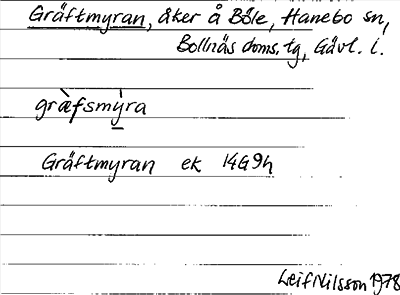 Gräftmyran, åker å Böle, Hanebo sn,
Bollnäs doms. tg, Gävl. l.
græ̀fsmýra
Gräftmyran ek 14G9h
Leif Nilsson 1978